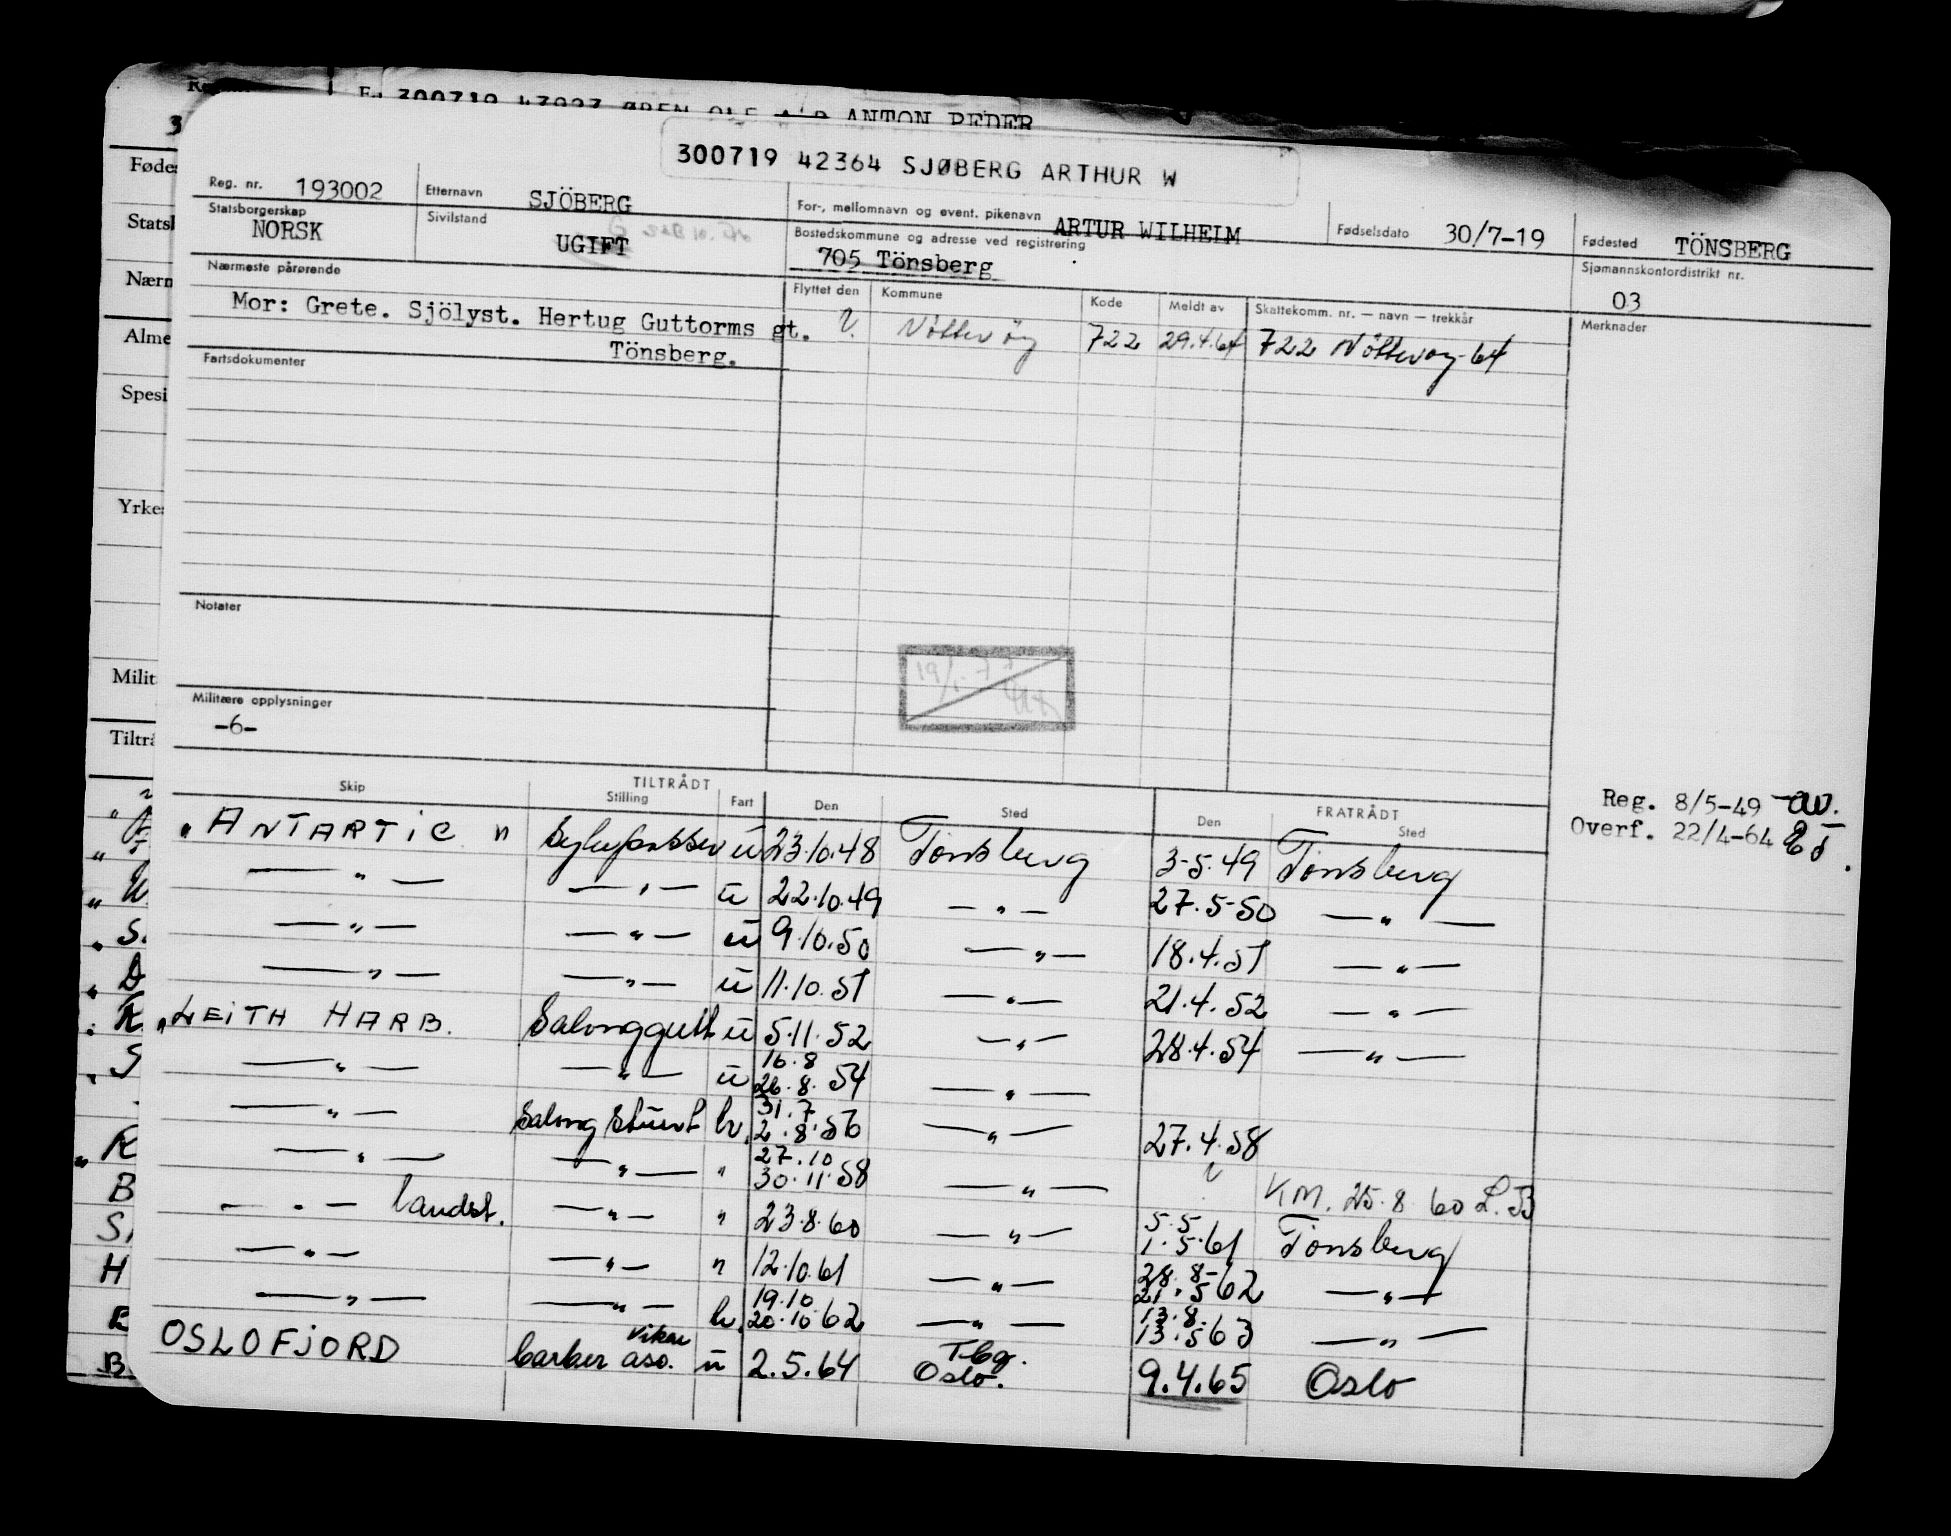 300719 43923 ØREN OLE ANTON PEDER
300719 42364 SJØBERG ARTHUR W
Reg. nr. 193002 Etternavn SJÖBERG For-, mellomnavn og event. pikenavn ARTUR WILHELM Fødselsdato 30/7-19 Fødested TÖNSBERG
Statsborgerskap NORSK Sivilstand UGIFT Bostedskommune og adresse ved registrering 705 Tönsberg Sjømannskontordistrikt nr. 03
Nærmeste pårørende Flyttet den Kommune Kode Meldt av Skattekomm. nr. — navn — trekkår Merknader
Mor: Grete. Sjölyst. Hertug Guttorms gt. Nøtterøy 722 29.4.64 722 Nøtterøy-64
Tönsberg.
Fartsdokumenter
Notater
Militære opplysninger
-6-
Reg. 8/5-49
Overf. 22/4-64
TILTRÅDT FRATRÅDT
Skip Stilling Fart Den Sted Den Sted
"ANTARTIC" u 23.10.48 Tönsberg 3-5.49 Tönsberg
—"— —"— u 22.10.49 —"— 27.5-50 —"—
—"— —"— u 9.10.50 —"— 18.4.51 —"—
—"— —"— u 11.10.51 —"— 21.4.52 —"—
"LEITH HARB. Salonggutt u 5.11.52 —"— 28.4.54 —"—
—"— —"— u 16.8 26.8.54 —"—
—"— Salong stuert hv. 31.7 2.8.56 —"— 27.4.58
—"— —"— " 27.10 30.11.58 —"— KM. 25.8.60 L.B
—"— landst. —"— " 23.8.60 —"— 5.5 1.5.61 Tönsberg
—"— —"— " 12.10.61 —"— 28.8- 21.5 62 —"—
—"— —"— hv. 19.10 20.10.62 —"— 13.8. 13.5 63 —"—
OSLOFJORD barber ass. vikar u 2.5.64 Tbg. Oslo. 9.4.65 Oslo